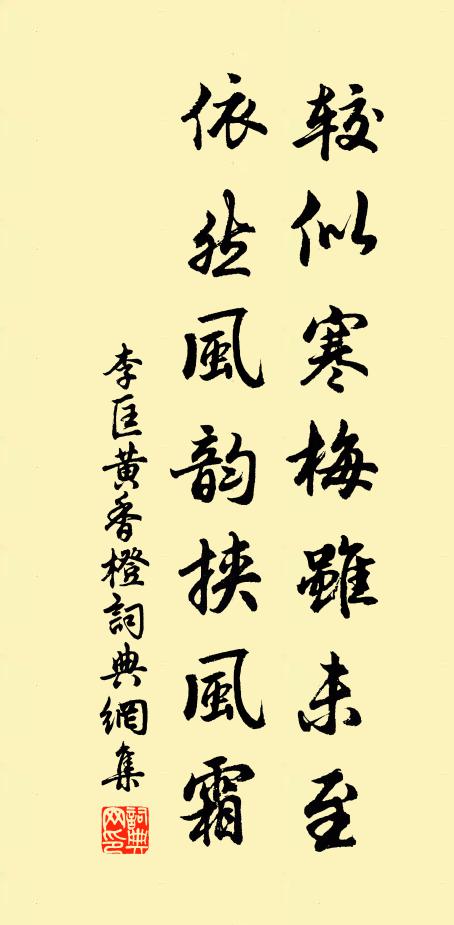 较似寒梅雖未至
依然風韵挾風霜
李匡黄香橙詞典網集
詞典网印